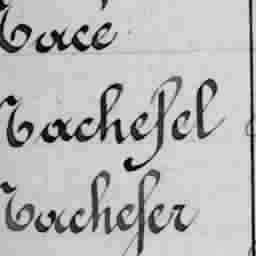 Macé
Machefel
Machefer